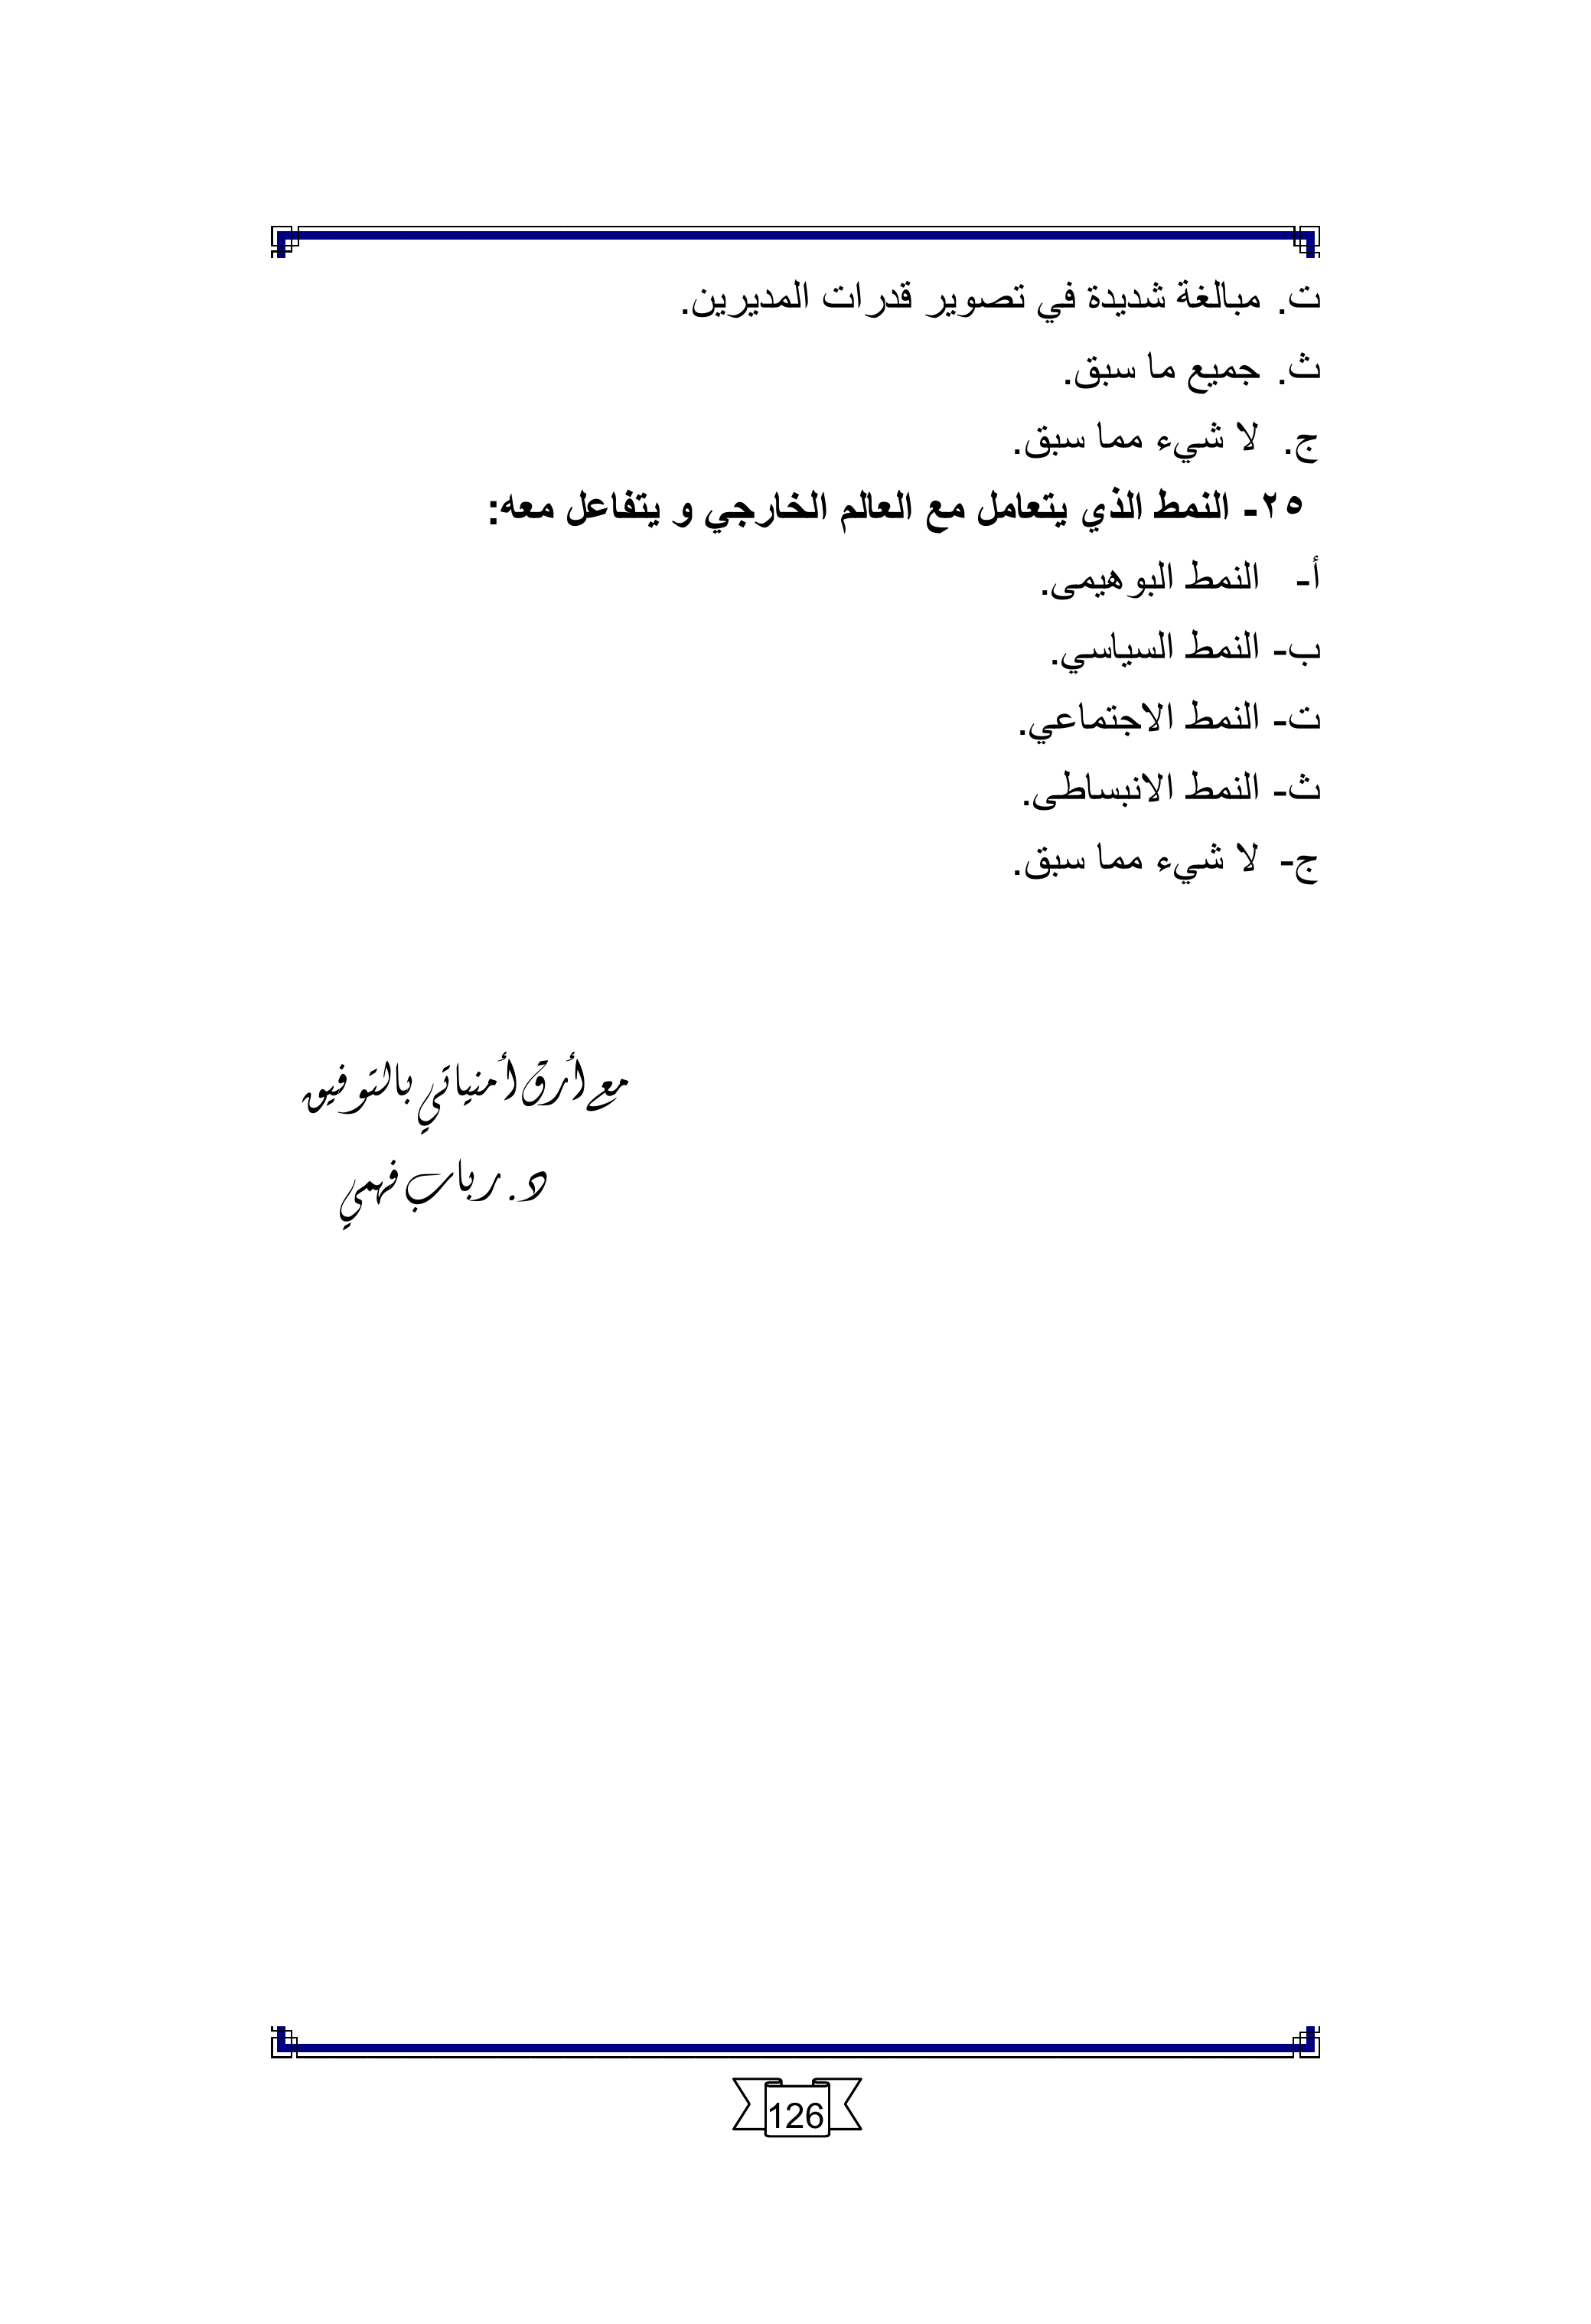 ت. مبالغة شديدة في تصوير قدرات المديرين.
ث. جميع ما سبق.
ج. لا شيء مما سبق.
٢٥- النمط الذي يتعامل مع العالم الخارجي و يتفاعل معه:
أ- النمط البوهيمى.
ب- النمط السياسي.
ت- النمط الاجتماعي.
ث- النمط الانبساطى.
ج- لا شيء مما سبق.
مع أرق أمنياتي بالتوفيق
د. رباب فهمي
126